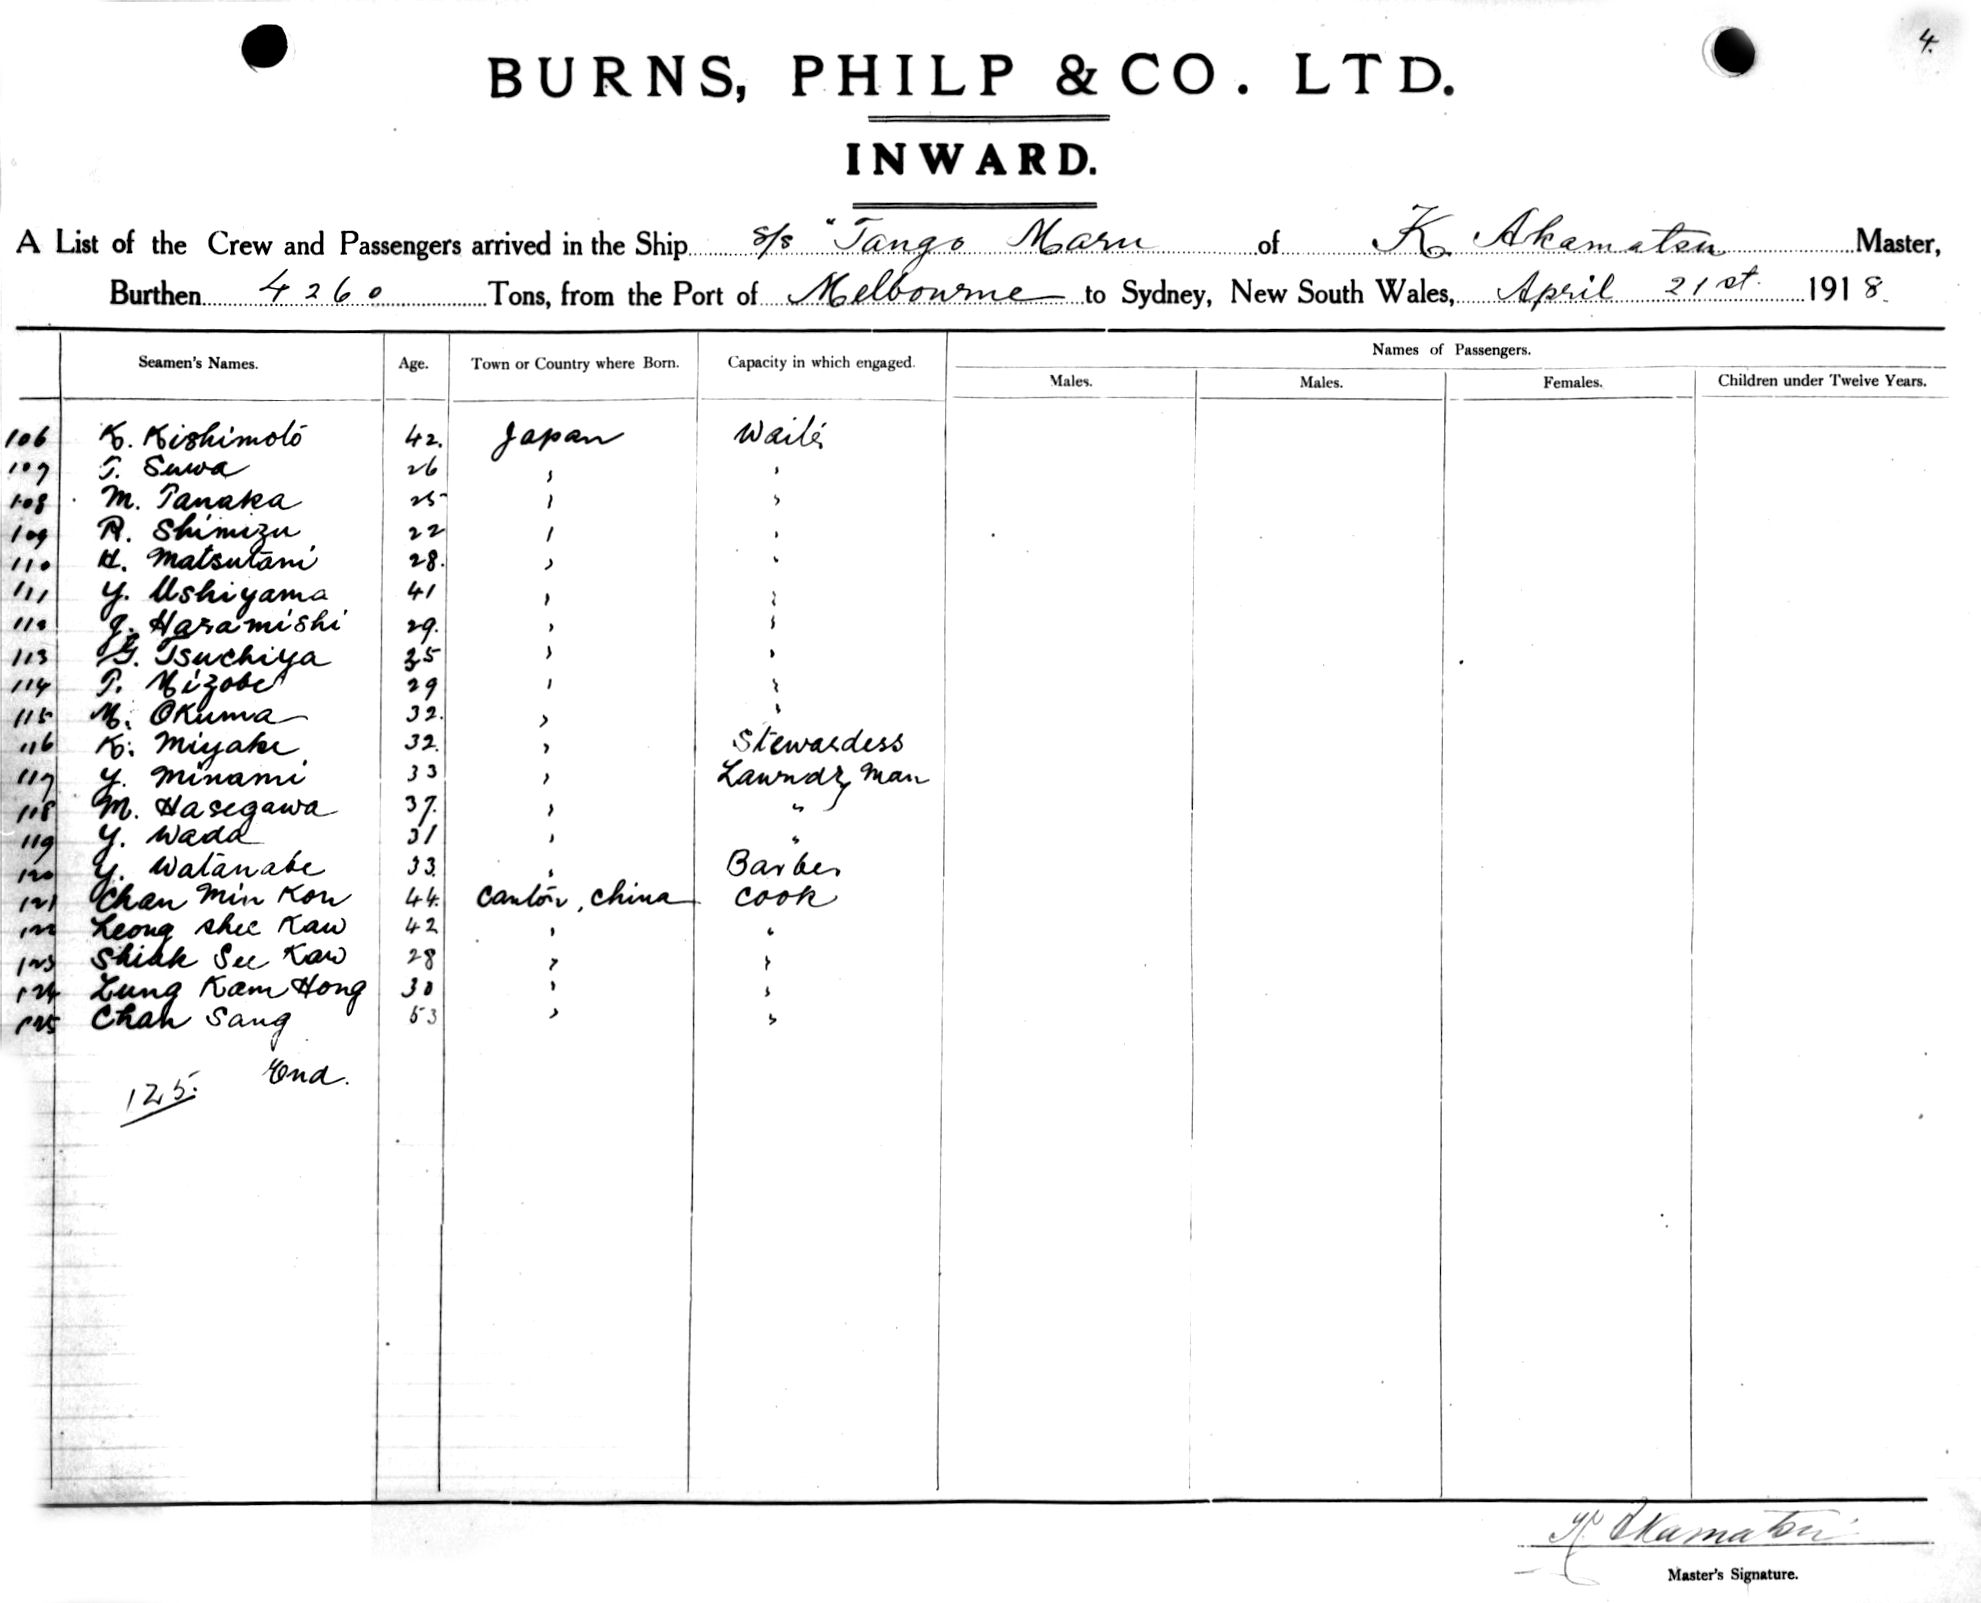 4.
BURNS, PHILP & CO. LTD.
INWARD.
A List of the Crew and Passengers arrived in the Ship s/s "Tango Maru of K. Akamatsu Master,
Burthen 4260 Tons, from the Port of Melbourne to Sydney, New South Wales, April 21st. 1918.
Names of Passengers.
Seamen's Names. Age. Town or Country where Born. Capacity in which engaged. Males. Males. Females. Children under Twelve Years.
106 K. Kishimoto 42. Japan Waiter
107 T. Suwa 26 " "
108 M. Tanaka 25 " "
109 R. Shimizu 22 " "
110 H. Matsutani 28. " "
111 Y. Ushiyama 41 " "
112 Haramishi 29. " "
113 Tsuchiya 35 " "
114 T. Mizobe 29 " "
115 M. Okuma 32. " "
116 K. Miyake 32. " Stewardess
117 Y. Minami 33 " Laundry Man
118 M. Hasegawa 37. " "
119 Y. Wada 31 " "
120 Y. Watanabe 33. " Barber
121 Chan Min Kon 44. Canton, China Cook
122 Leong Shee Kaw 42 " "
123 See Kaw 28 " "
124 Lung Kam Hong 30 " "
125 Chan Sang 53 " "
End.
125.
K. Akamatsu
Master's Signature.